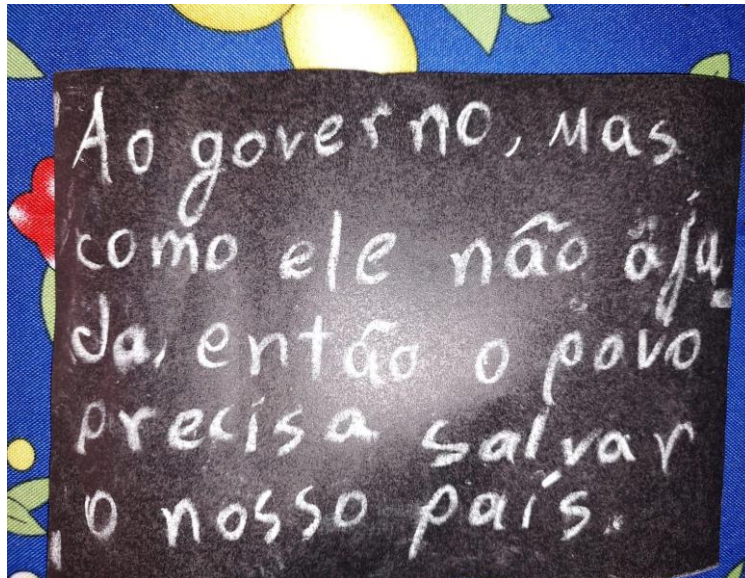 Ao governo, Mas
como ele não aju
da, então o povo
precisa salvar
o nosso país.